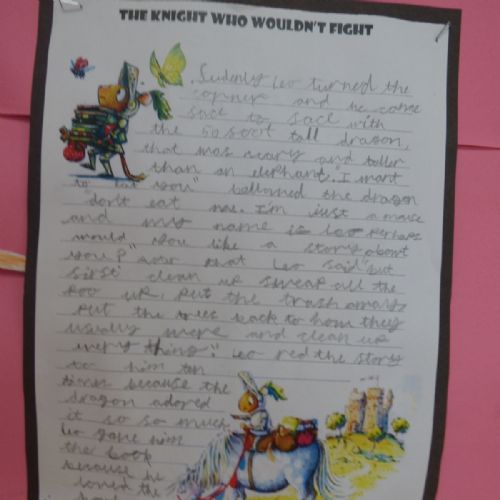 THE KNIGHT WHO WOULDN'T FIGHT
. Sudenly Leo turned the
corner and he came
face to face with
the 50 foot tall dragon,
that was scary and taller
than an elephant. I want
to eat you" bellowed the dragon
don't eat me. I'm just a mouse
and my name is Leo perhaps
would you like a story about
you? After that Leo said "but
first clean up sweap all the
poo up, put the trash away,
put the trees back to how they
usually were and clean up
every thing". Leo red the story
to him ten
times because the
dragon adored
it so so much
Leo gave him
the book
because he
loved the